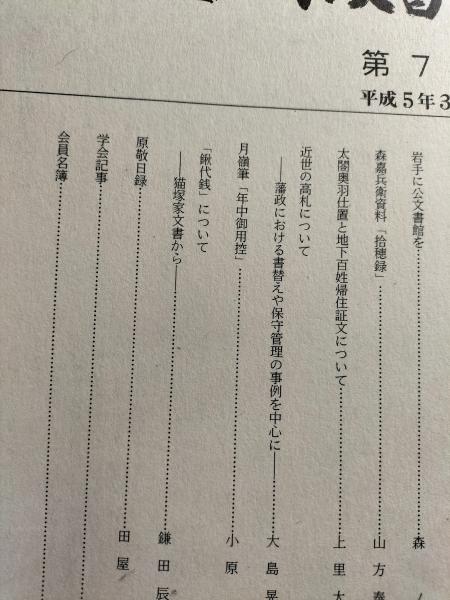 第 7
平成5年3
岩手に公文書館を……………森
森嘉兵衛資料「拾穂録」……………山方泰
太閤奥羽仕置と地下百姓帰住証文について……………上里太
近世の高札について
――藩政における書替えや保守管理の事例を中心に――……………大島晃
月嶺筆「年中御用控」……………小原
「鍬代銭」について
――猫塚家文書から――……………鎌田辰
原敬日録……………田屋
学会記事……………
会員名簿……………